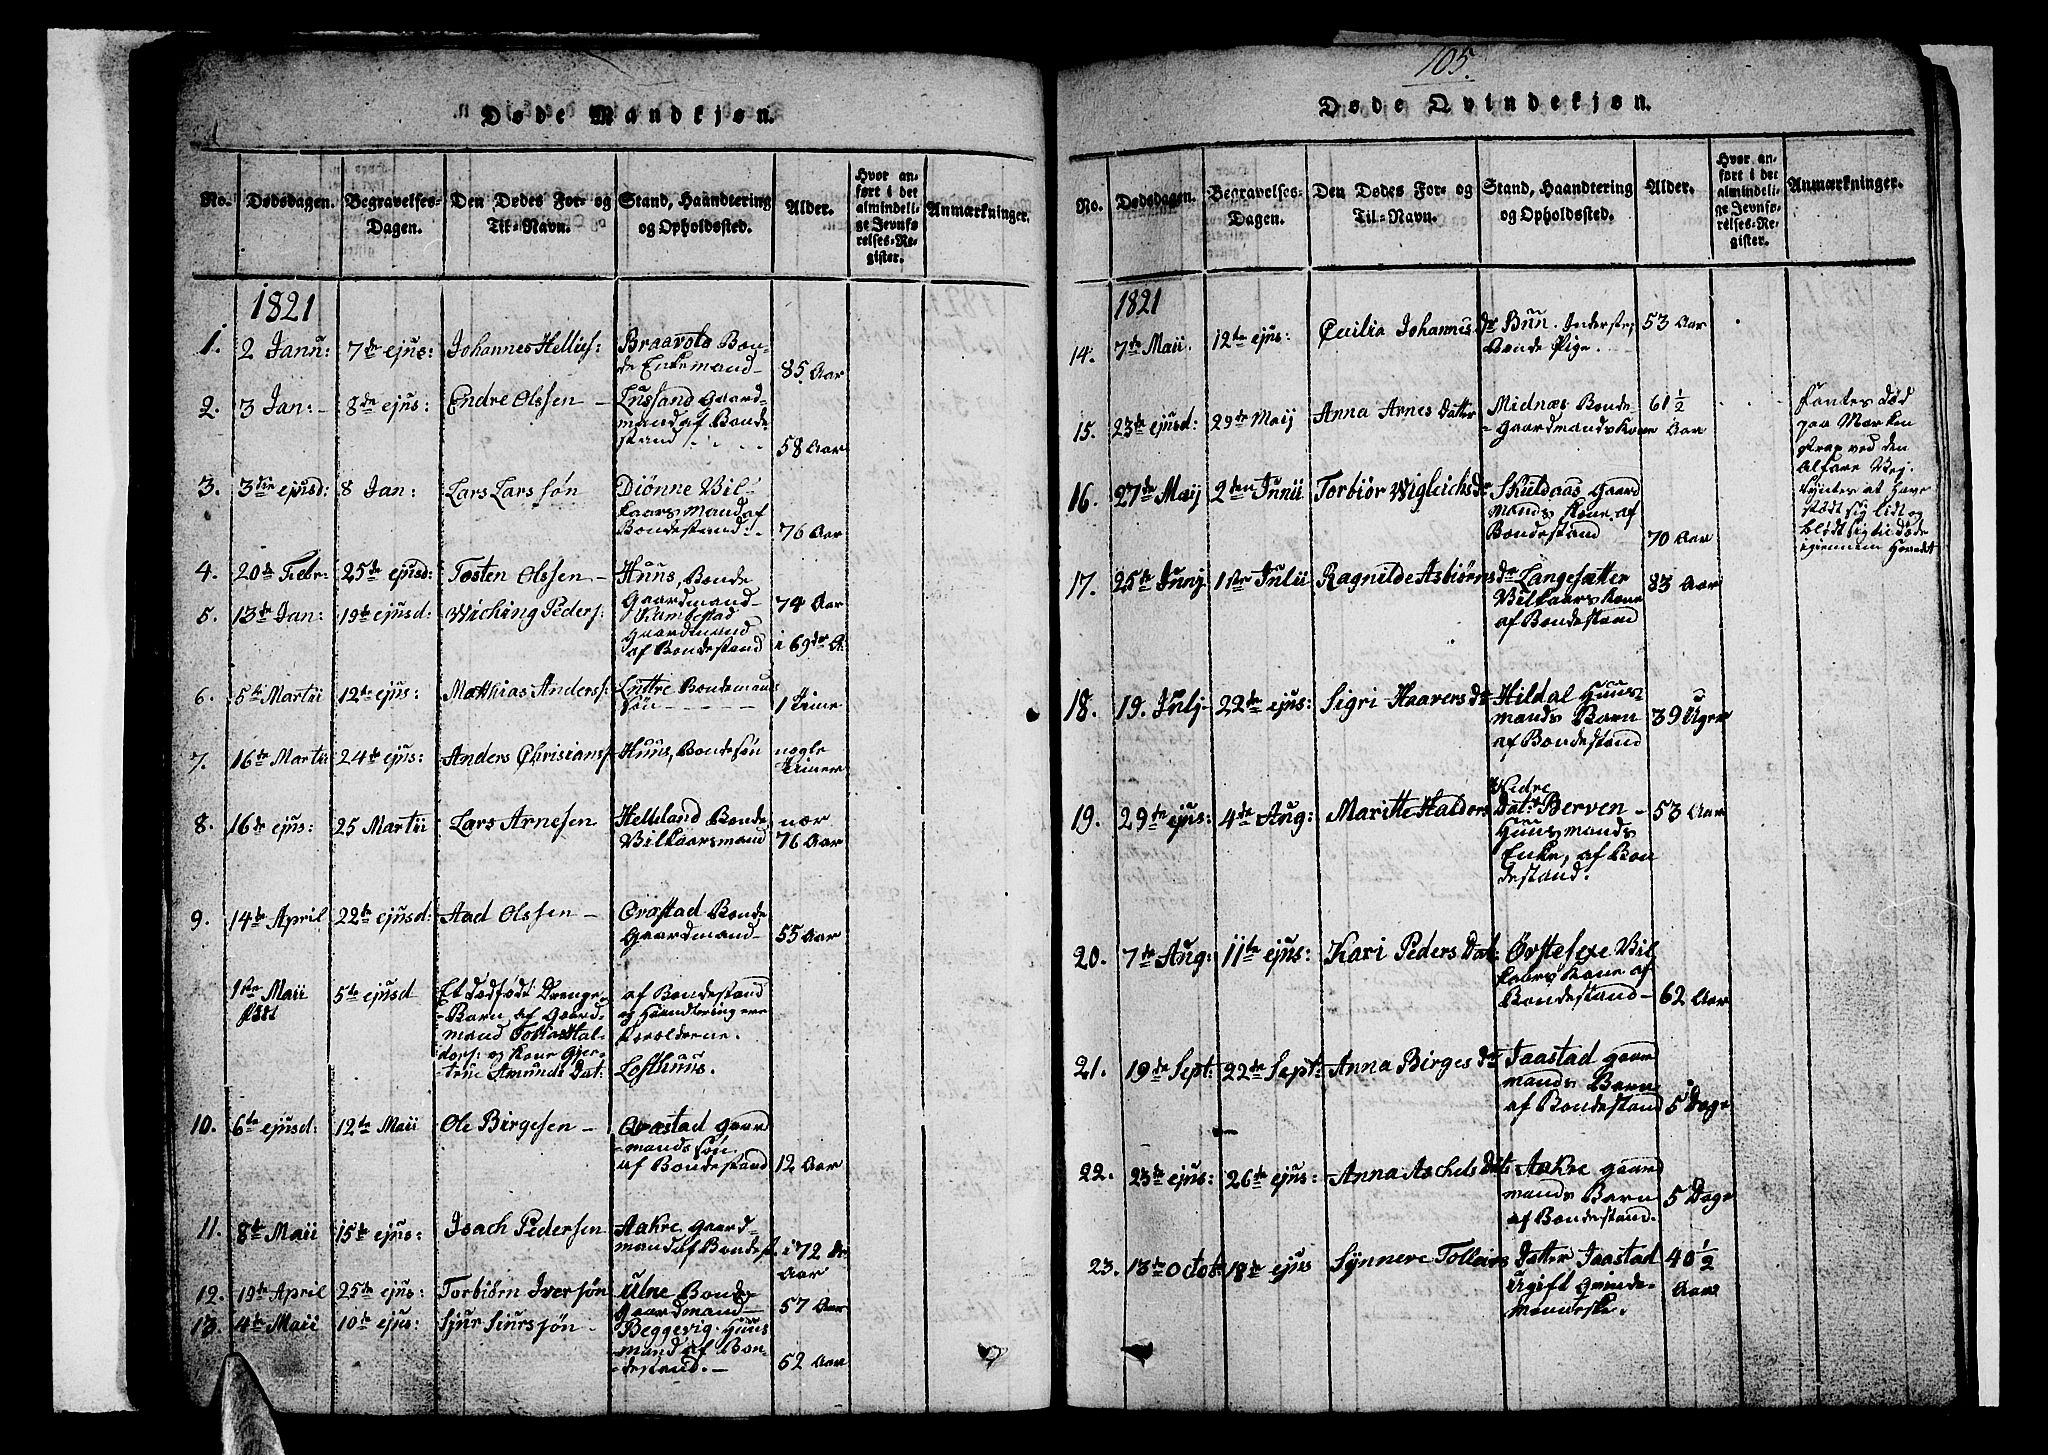 Døde Mandkjøn.
No.
Dødsdagen.
Begravelses-
Dagen.
Den Dødes For- og
Til-Navn.
Stand, Haandtering
og Opholdssted.
Alder.
Hvor an-
ført i det
almindeli-
ge Jevnfø-
relses-Re-
gister.
Anmærkninger.
1821
1. 2 Janu: 7de ejus: Johannes Hellies: Braavold Bon-
de Enkemand- 85 Aar
2. 3 Jan:- 8de ejus: Endre Olssen - Lussand Gaard-
mand af Bonde
stand 58 Aar
3. 3die ejusd: 8 Jan: Lars Larssøn Diønne Vil-
kaarsmand af
Bondestand 76 Aar
4. 20de Febr: 25de ejusd: Tosten Olssen - Huus, Bonde
Gaardmand- 74 Aar
5. 13de Jan: 19de ejusd: Wiching Peders: Kambestad
Gaardmand
af Bondestand i 69de A
6. 5te Martii 12te ejus: Matthias Anders: Luttre Bondemands
søn 1 Time
7. 16de Martii 24de ejus: Anders Chrisians: Huus, Bondesøn nogle
Timer
8. 16de ejus: 25 Martii Lars Arnesen Helleland Bonde
Vilkaarsmand nær
76 Aar
9. 14de April 22de ejusd: Aad Olssen - Qvæstad Bonde
Gaardmand- 55 Aar
1ste Maii
født 5te ejusd Et dødfødt Drenge-
Barn af Gaard-
mand Tobias Hal-
dors: og Kone Gjer-
true Amunds Dat: af Bondestand
og Haandtering ere
Forældrene.
Lofthuus.
10. 6te ejusd: 12te Maii Ole Birgesen - Qvæstad Gaard
mands søn
af Bondestand 12 Aar
11. 8de Maii 15de ejus: Isach Pedersen Aakre Gaard-
mand af Bondest. i 72 de
Aar
12. 19de April 25de ejus: Torbiørn Iversøn Ulne Bonde
Gaardmand- 57 Aar
13. 4de Maii 10de ejus: Siur Siurssøn - Beggevig Huus
mand af Bon-
destand.- 62 Aar
105.
Døde Qvindekjøn.
No.
Dødsdagen.
Begravelses-
Dagen.
Den Dødes For- og
Til-Navn.
Stand, Haandtering
og Opholdssted.
Alder.
Hvor an-
ført i det
almindeli-
ge Jevnfø-
relses-Re-
gister.
Anmærkninger.
1821
14. 7de Maii. 12te ejus: Cecilia Johannis Dr Buu. Inderste,
Bonde Pige. 53 Aar
15. 23de ejusd: 29de Maij Anna Arnes Datter Midnæs Bonde
Gaardmands Kone 61 1/2
Aar
Fantes død
paa Marken
strax ved den
alfare Vej.
Syntes at have
stødt sig lidt og
blødt sig til døde
igiennem Hovedet
16. 27de Maij 2den Junii Torbiør Wigleichs Dr Skuldaas Gaard
mands Kone af
Bondestand 70 Aar
17. 25de Junij 1ste Julii Ragnilde Asbiørns Dr Langesætter
Vilkaars Kone
af Bondestand 83 Aar
18. 19. Julj- 22de ejus: Sigri Haavers Dr Hildal Huus-
mands Barn
af Bondestand 39 Uger
19. 29de ejus: 4de Aug: Maritte Haldors Dat: Nidre
Berven -
Huusmands
Enke, af Bon
destand. 53 Aar
20. 7de Aug: 11te ejus: Kari Peders Dat: Øvstesexe Vil
kaars Kone af
Bondestand- 62 Aar
21. 19de Sept: 22de Sept: Anna Birges Dr Jaastad Gaard
mands Barn
af Bondestand 5 Dage
22. 23de ejus: 26de ejus: Anna Aschels Dat: Aakre Gaard
mands Barn
af Bondestand. 5 Dage
23. 13de Octob: 18de ejus Synneve Tolleivs Datter Jaastad
Ugift Qvinde-
menneske. 40 1/2
Aar